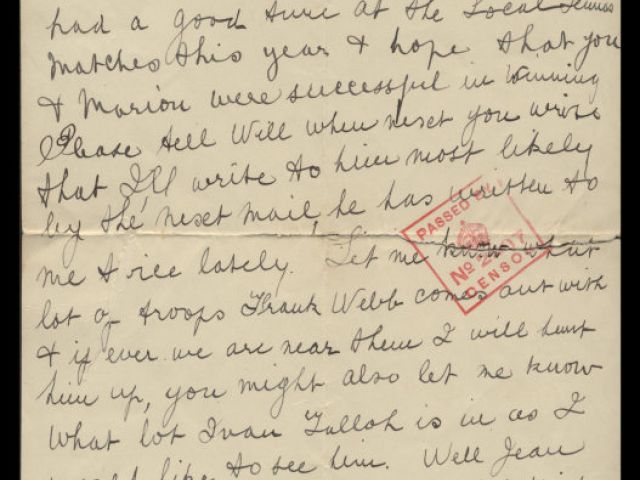 had a good time at the Local Tennis
matches this year & hope that you
& Marion were successful in winning
Please tell Will when next you write
that I'll write to him most likely
by the next mail, he has written to
me twice lately. Let me know what
lot of troops Frank Webb comes out with
& if ever we are near them I will hunt
him up, you might also let me know
what lot Ivan Tulloh is in as I
would like to see him. Well Jean
PASSED BY
No
CENSOR